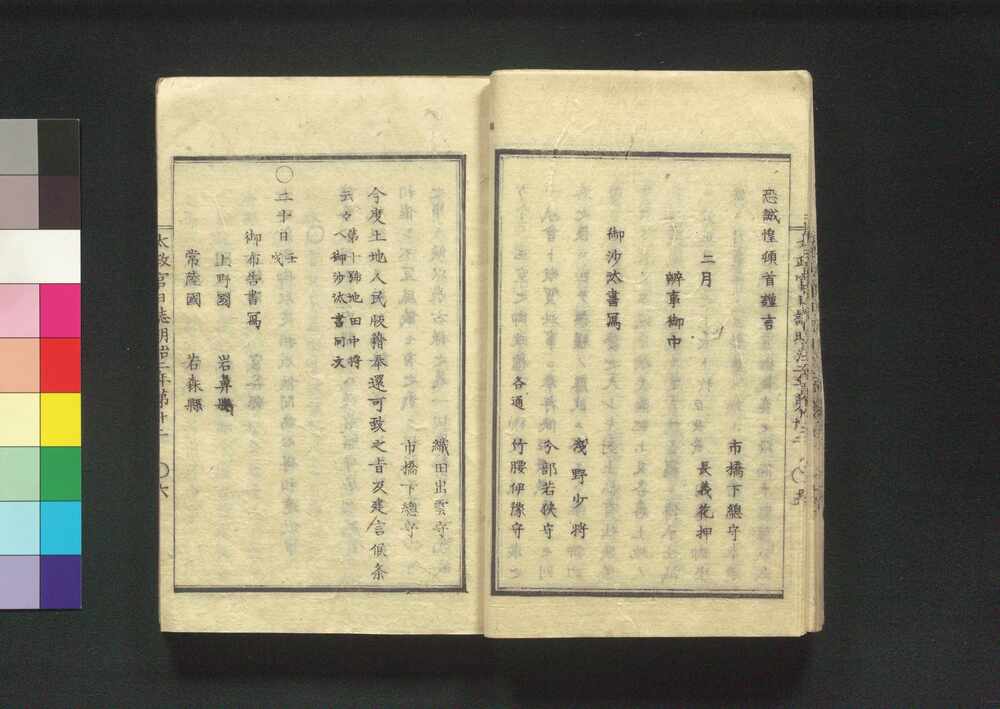 恐誠惶頓首謹言
市橋下總守
二月
長義花押
辨事御中
御沙汰書寫
淺野少將
分部若狹守
各通
竹腰伊豫守
織田出雲守
市橋下總守
今度土地人民版籍奉還可致之旨及建言候条
云々 第十號地田中將
へ御沙汰書同文
〇二十日
御布告書寫
上野國 岩鼻縣
常陸國 若森縣
太政官日誌明治二年第廿二 〇六